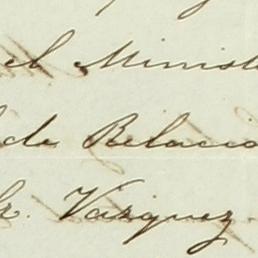 el Minist
de Relacio
Sr. Vazquez.